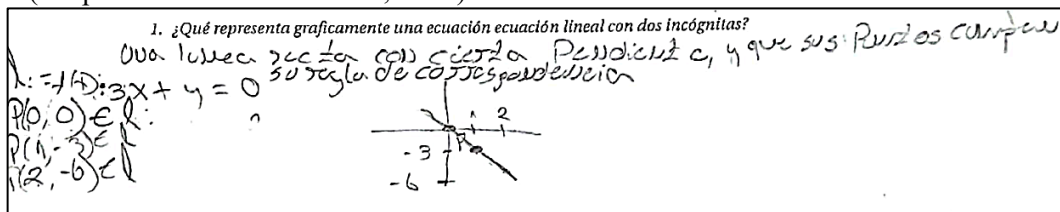 1. ¿Qué representa graficamente una ecuación ecuación lineal con dos incógnitas?
Una linea recta con cierta Pendiente, y que sus Puntos cumplen
su regla de correspondencia
3x + y = 0
P(0, 0) ∈ l
P(1, -3) ∈ l
P(2, -6) ∈ l
1 2
-3
-6